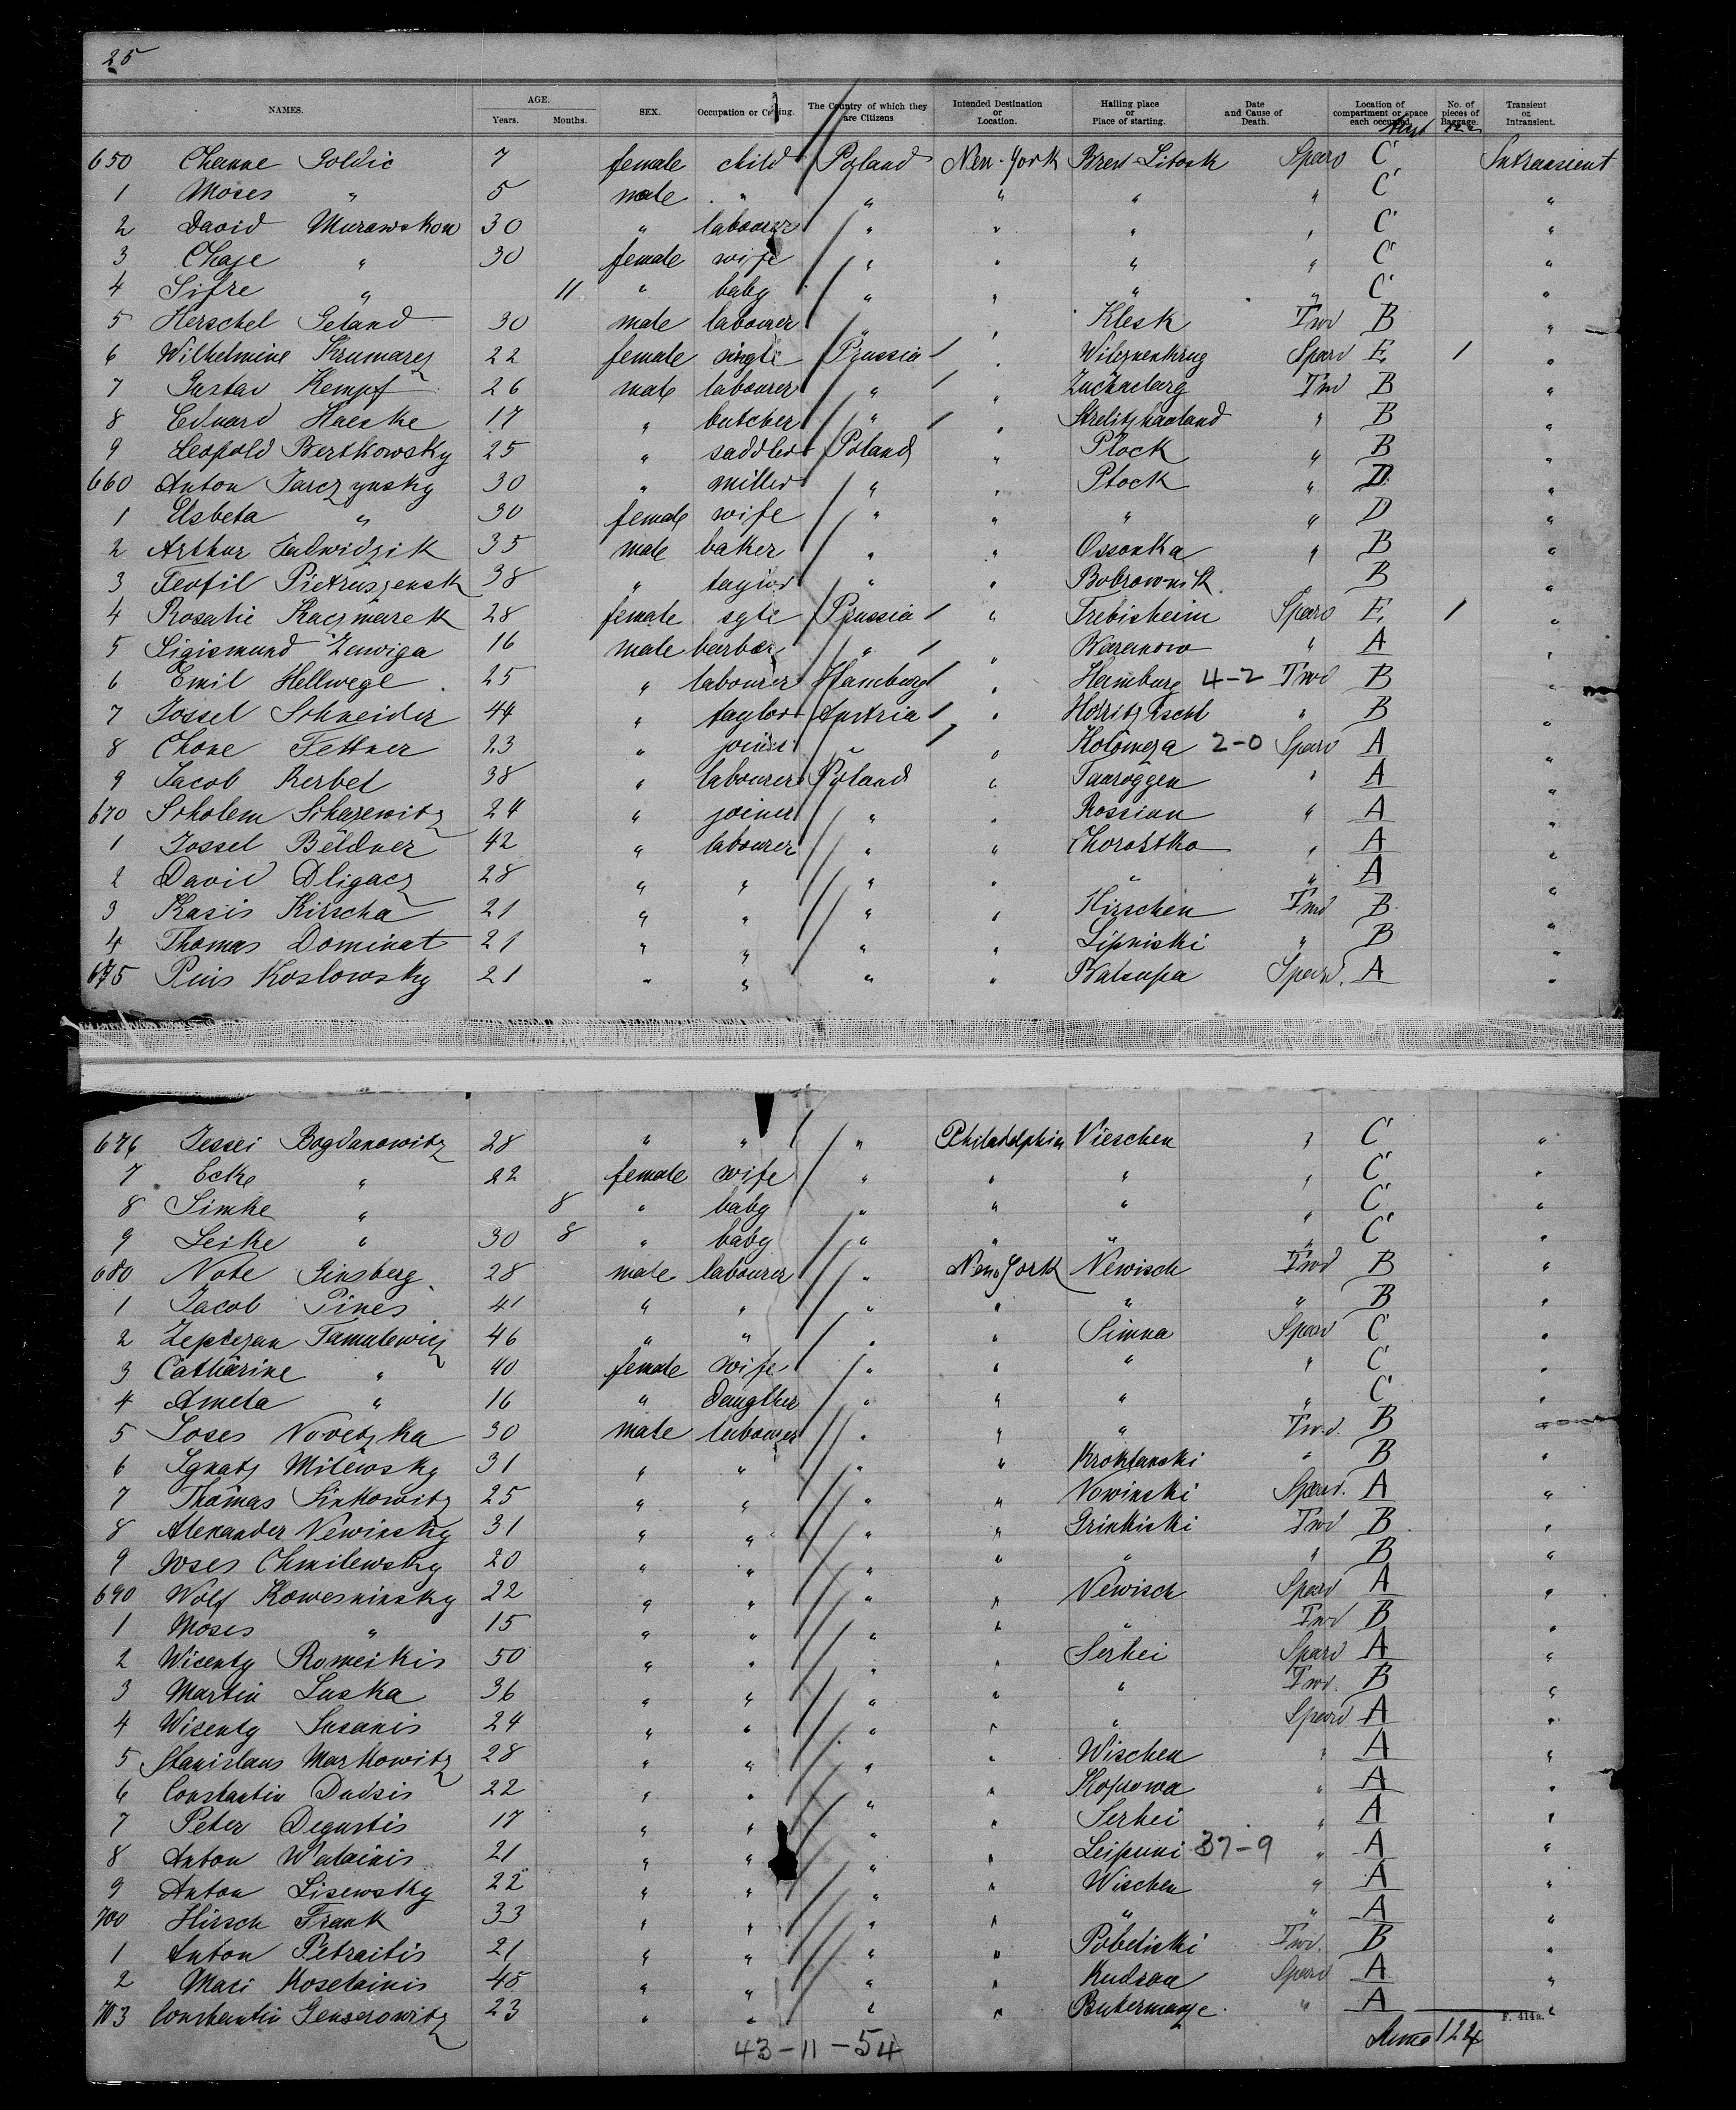 25
NAMES. AGE. Years. Months. SEX. Occupation or Calling. The Country of which they are Citizens Intended Destination or Location. Hailing place or Place of starting. Date and Cause of Death. Location of compartment or space each occupied. No. of pieces of Baggage. Transient or Intransient.
650 Channe Goldic 7 female child Poland New-York Brest-Litosk C Intransient
1 Moses " 5 male " " " " " C "
2 David Murawskow 30 " labourer " " " " C "
3 Chaje " 30 female wife " " " " C "
4 Sifre " 11 " baby " " " " C "
5 Herschel Geland 30 male labourer " " Klesk Twd B "
6 Wilhelmine Krumarez 22 female single Prussia " E 1 "
7 Gustav Kempf 26 male labourer " " Twd B "
8 Eduard Haeske 17 " butcher " " " B "
9 Leopold Bertkowsky 25 " saddler Poland " Plock " B "
660 Anton Jarczynsky 30 " miller " " Plock " D "
1 Elsbeta " 30 female wife " " " " D "
2 Arthur Jadwidzik 35 male baker " " Ossowka " B "
3 Teofil Pietruszensk 38 " taylor " " Bobrownik " B "
4 Rosalie Kaczmarek 28 female sgle Prussia " Trebisheim E 1 "
5 Sigismund 16 male barber " " Baranow " A "
6 Emil Hellwege 25 " labourer Hamburg " Hamburg 4-2 Twd B "
7 Jossel Schneider 44 " taylor Austria " " B "
8 Chone Fettner 23 " joiner " " Kolomeza 2-0 A "
9 Jacob Kerbel 38 " labourer Poland " Tauroggen " A "
670 Scholem Scherewitz 24 " joiner " " Rossian " A "
1 Jossel Beldner 42 " labourer " " Chorostko " A "
2 David Dligacz 28 " " " " " " A "
3 Kasis Kirscha 21 " " " " Hirschen Twd B "
4 Thomas Dominat 21 " " " " Lipniski " B "
675 Pius Koslowsky 21 " " " " Watsupa A "
676 Jessei Bogdanowitz 28 " " " Philadelphia Vieschen " C "
7 Ecke " 22 female wife " " " " C "
8 Simke " 8 " baby " " " " C "
9 Leike " 30 8 " baby " " " " C "
680 Note Ginsberg 28 male labourer " New York Newisch Twd B "
1 Jacob Pines 41 " " " " " " B "
2 Tamulewicz 46 " " " " Simna C "
3 Catharine " 40 female wife " " " " C "
4 Ameta " 16 " Daugther " " " " C "
5 Joses Novetzka 30 male labourer " " " Twd. B "
6 Ignatz Milewsky 31 " " " " Kroktanski " B "
7 Thomas Sinkowitz 25 " " " " Nowinski A "
8 Alexander Newinsky 31 " " " " Grinkiski Twd B "
9 Joses Chmilewsky 20 " " " " " " B "
690 Wolf Kowesninsky 22 " " " " Newisch A "
1 Moses " 15 " " " " " Twd B "
2 Wicenty Romeikis 50 " " " " Serhei A "
3 Martin Luska 36 " " " " " Twd. B "
4 Wicenty Susanis 24 " " " " " A "
5 Stanislaus Markowitz 28 " " " " Wischen " A "
6 Constantin Dudsis 22 " " " " Kopsowa " A "
7 Peter Degustis 17 " " " " Serhei " A "
8 Anton Walainis 21 " " " " Leipuni 37-9 " A "
9 Anton Lisewsky 22 " " " " Wischen " A "
700 Hirsch Frank 33 " " " " " " A "
1 Anton Petraitis 21 " " " " Pobeliski Twd. B "
2 Maci Koselainis 45 " " " " Kudraa A "
703 Constantin Genserowitz 23 " " " " Butermanze " A "
F. 414a.
43-11-54 124